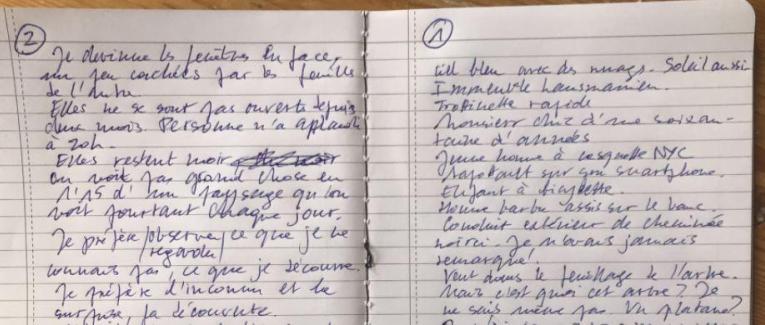 2
Je devine les fenêtres en face,
un peu cachées par les feuilles
de l'arbre.
Elles ne se sont pas ouvertes depuis
deux mois. Personne n'a applaudi
à 20h.
Elles restent noires
On voit pas grand chose en
1'15 d'un paysage qu'on
voit pourtant chaque jour.
Je préfère observer ce que je ne
regarder
connais pas, ce que je découvre.
Je préfère l'inconnu et la
surprise, la découverte.
1
Ciel bleu avec des nuages. Soleil aussi
Immeuble hausmanien.
Trottinette rapide
Monsieur chic d'une soixan-
taine d'années
Jeune homme à casquette NYC
tapotant sur son smartphone.
Enfant à bicyclette.
Homme barbu assis sur le banc.
Conduit extérieur de cheminée
noirci. Je n'avais jamais
remarqué!
Vent dans le feuillage de l'arbre.
Mais c'est quoi cet arbre? Je
ne sais même pas. Un platane?